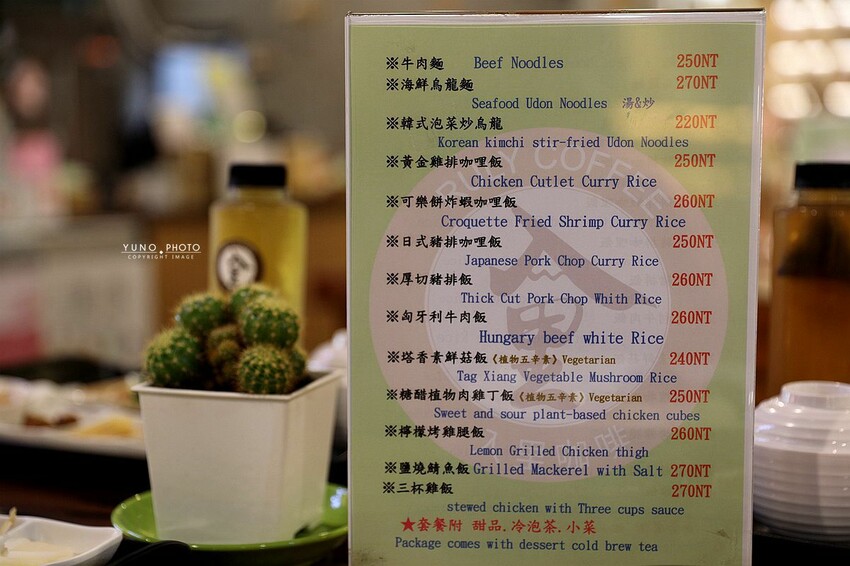 ※牛肉麵 Beef Noodles 250NT
※海鮮烏龍麵 270NT
Seafood Udon Noodles 湯&炒
※韓式泡菜炒烏龍 220NT
Korean kimchi stir-fried Udon Noodles
※黃金雞排咖哩飯 250NT
Chicken Cutlet Curry Rice
※可樂餅炸蝦咖哩飯 260NT
Croquette Fried Shrimp Curry Rice
※日式豬排咖哩飯 250NT
Japanese Pork Chop Curry Rice
※厚切豬排飯 260NT
Thick Cut Pork Chop Whith Rice
※匈牙利牛肉飯 260NT
Hungary beef white Rice
※塔香素鮮菇飯《植物五辛素》Vegetarian 240NT
Tag Xiang Vegetable Mushroom Rice
※糖醋植物肉雞丁飯《植物五辛素》Vegetarian 250NT
Sweet and sour plant-based chicken cubes
※檸檬烤雞腿飯 260NT
Lemon Grilled Chicken thigh
※鹽燒鯖魚飯 Grilled Mackerel with Salt 270NT
※三杯雞飯 270NT
stewed chicken with Three cups sauce
★套餐附 甜品.冷泡茶.小菜
Package comes with dessert cold brew tea
YUNO PHOTO
COPYRIGHT IMAGE